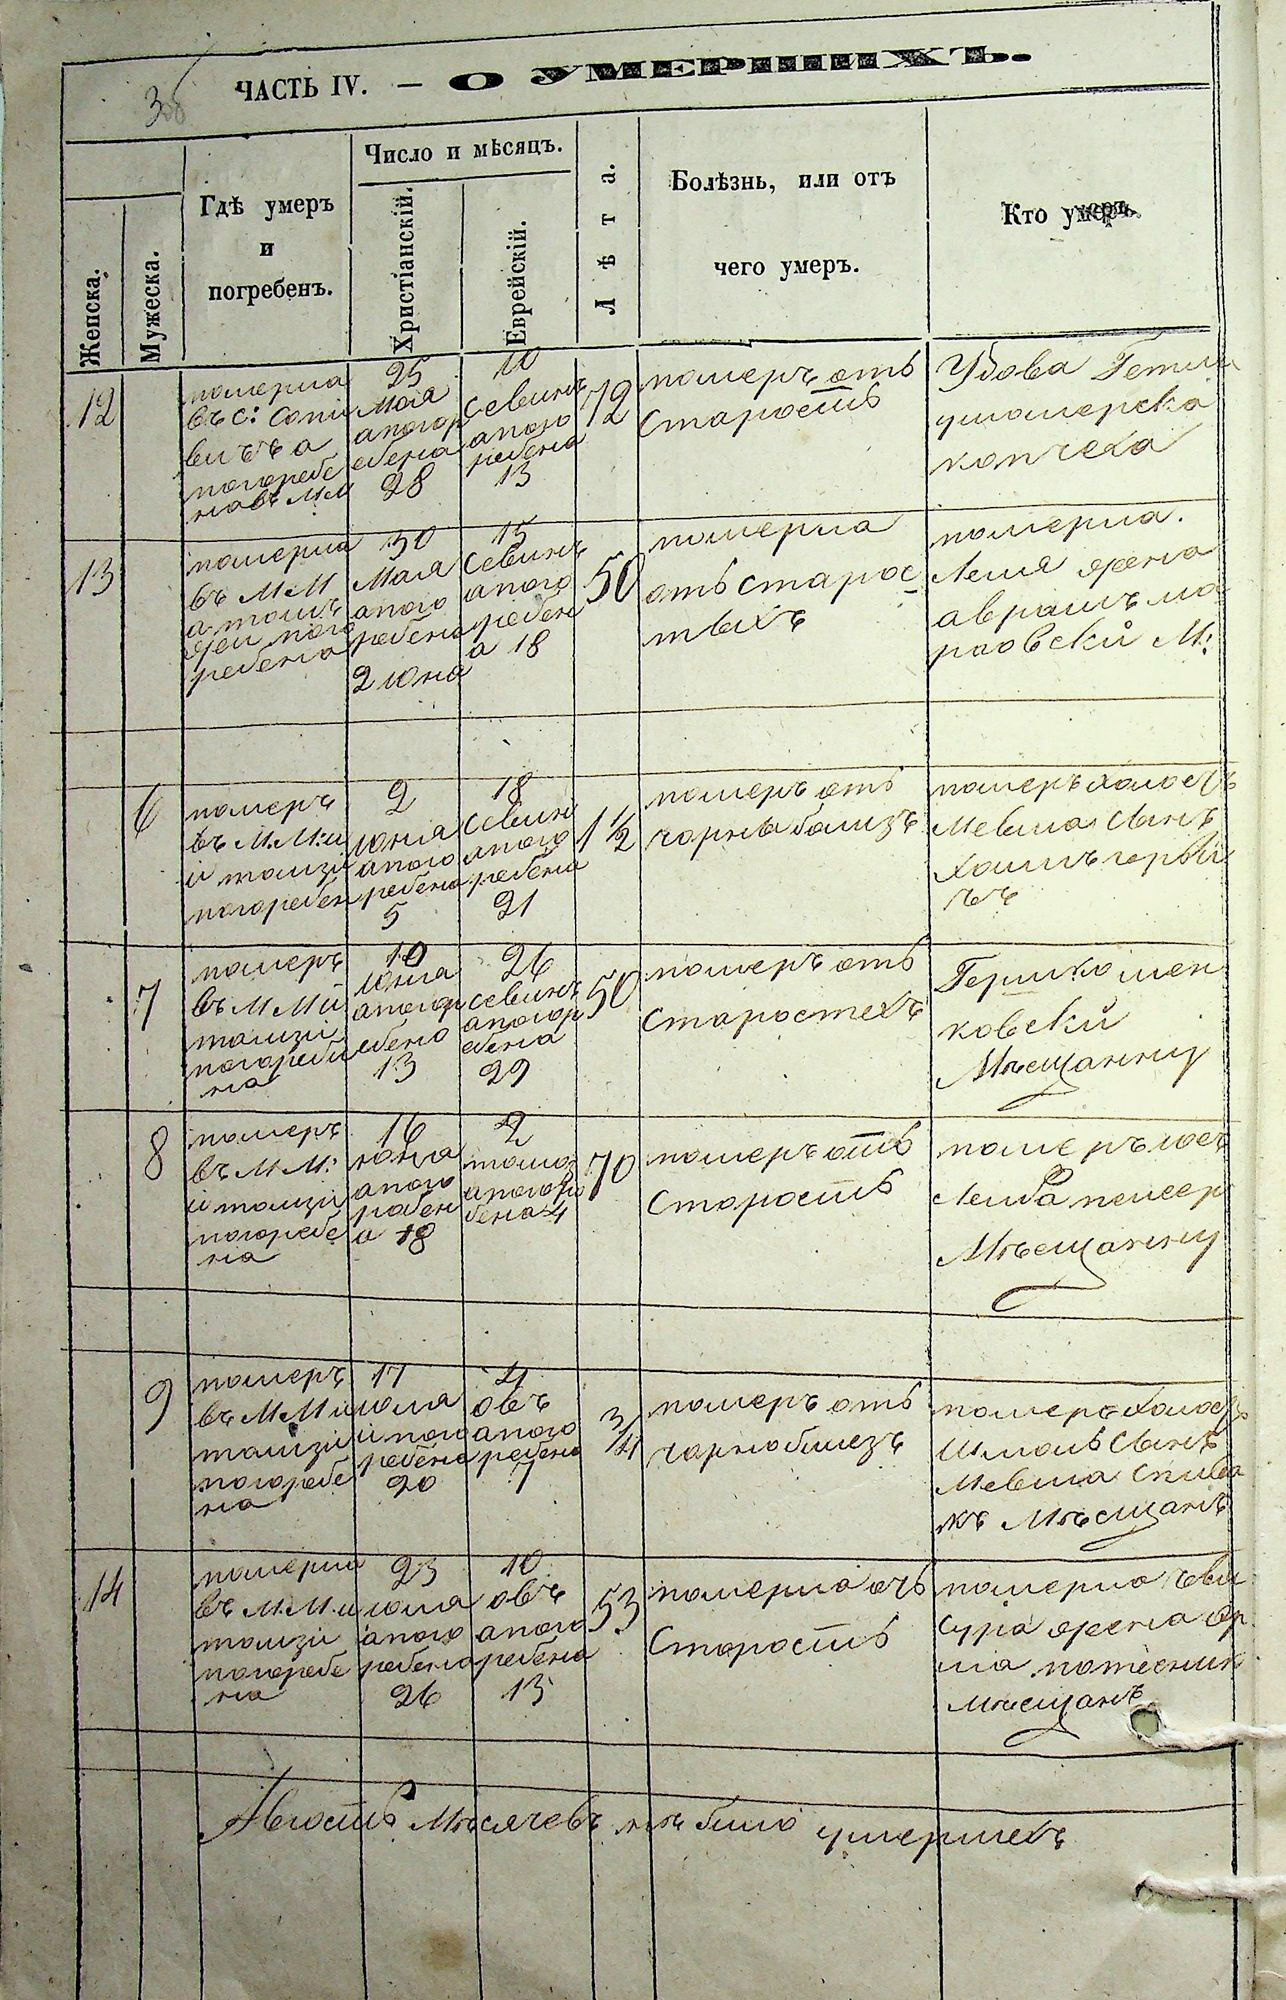 ЧАСТЬ IV. — О УМЕРШИХЪ.
Женска.
Мужеска.
Гдѣ умеръ
и
погребенъ.
Число и мѣсяцъ.
Христіанскій.
Еврейскій.
Лѣта.
Болѣзнь, или отъ
чего умеръ.
Кто умеръ.
12
померла
въ с:
а
погоребе
на въ М М
25
Мая
апогор
ебена
28
10
Севинъ
апого
ребена
13
72
померъ отъ
Старость
Удова
13
померла
въ М М
ребена
30
Мая
апого
ребена
2 юна
15
Севинъ
апого
ребен
а 18
50
померла
отъ старос
тѣхъ
померла.
Лея жена
аврамъ
М:
6
померъ
въ М.М.и
и тамзи
погоребен
2
юня
апого
ребена
5
18
Севин
апого
ребена
21
1 1/2
померъ отъ
померъ холостъ
Мевша Сынъ
7
померъ
въ М М и
тамзи
погореби
на
10
юня
апогор
ебено
13
26
севинъ
апогор
ебена
29
50
померъ отъ
Старостехъ
Гершко мен
ковский
Мѣщанину
8
померъ
въ М М:
и тамзи
погоребе
на
16
юня
апого
ребен
а 18
2
тамоз
апогоре
бена 4
70
померъ отъ
Старость
померъ
Лейба
Мѣщанину
9
померъ
въ М М и
тамзи
погоребе
на
17
юля
и пого
ребена
20
4
овъ
апого
ребена
7
3/4
померъ отъ
померъ Холостъ
Шмоль Сынъ
Мевша Спива
къ Мѣщанъ
14
померла
въ М.М.и
тамзи
погоребе
на
23
юля
апого
ребена
26
10
овъ
апого
ребена
13
53
померла отъ
Старость
померла
Сура жена
Мѣщанъ
Авгостъ Мѣсячевъ нѣ било умершехъ